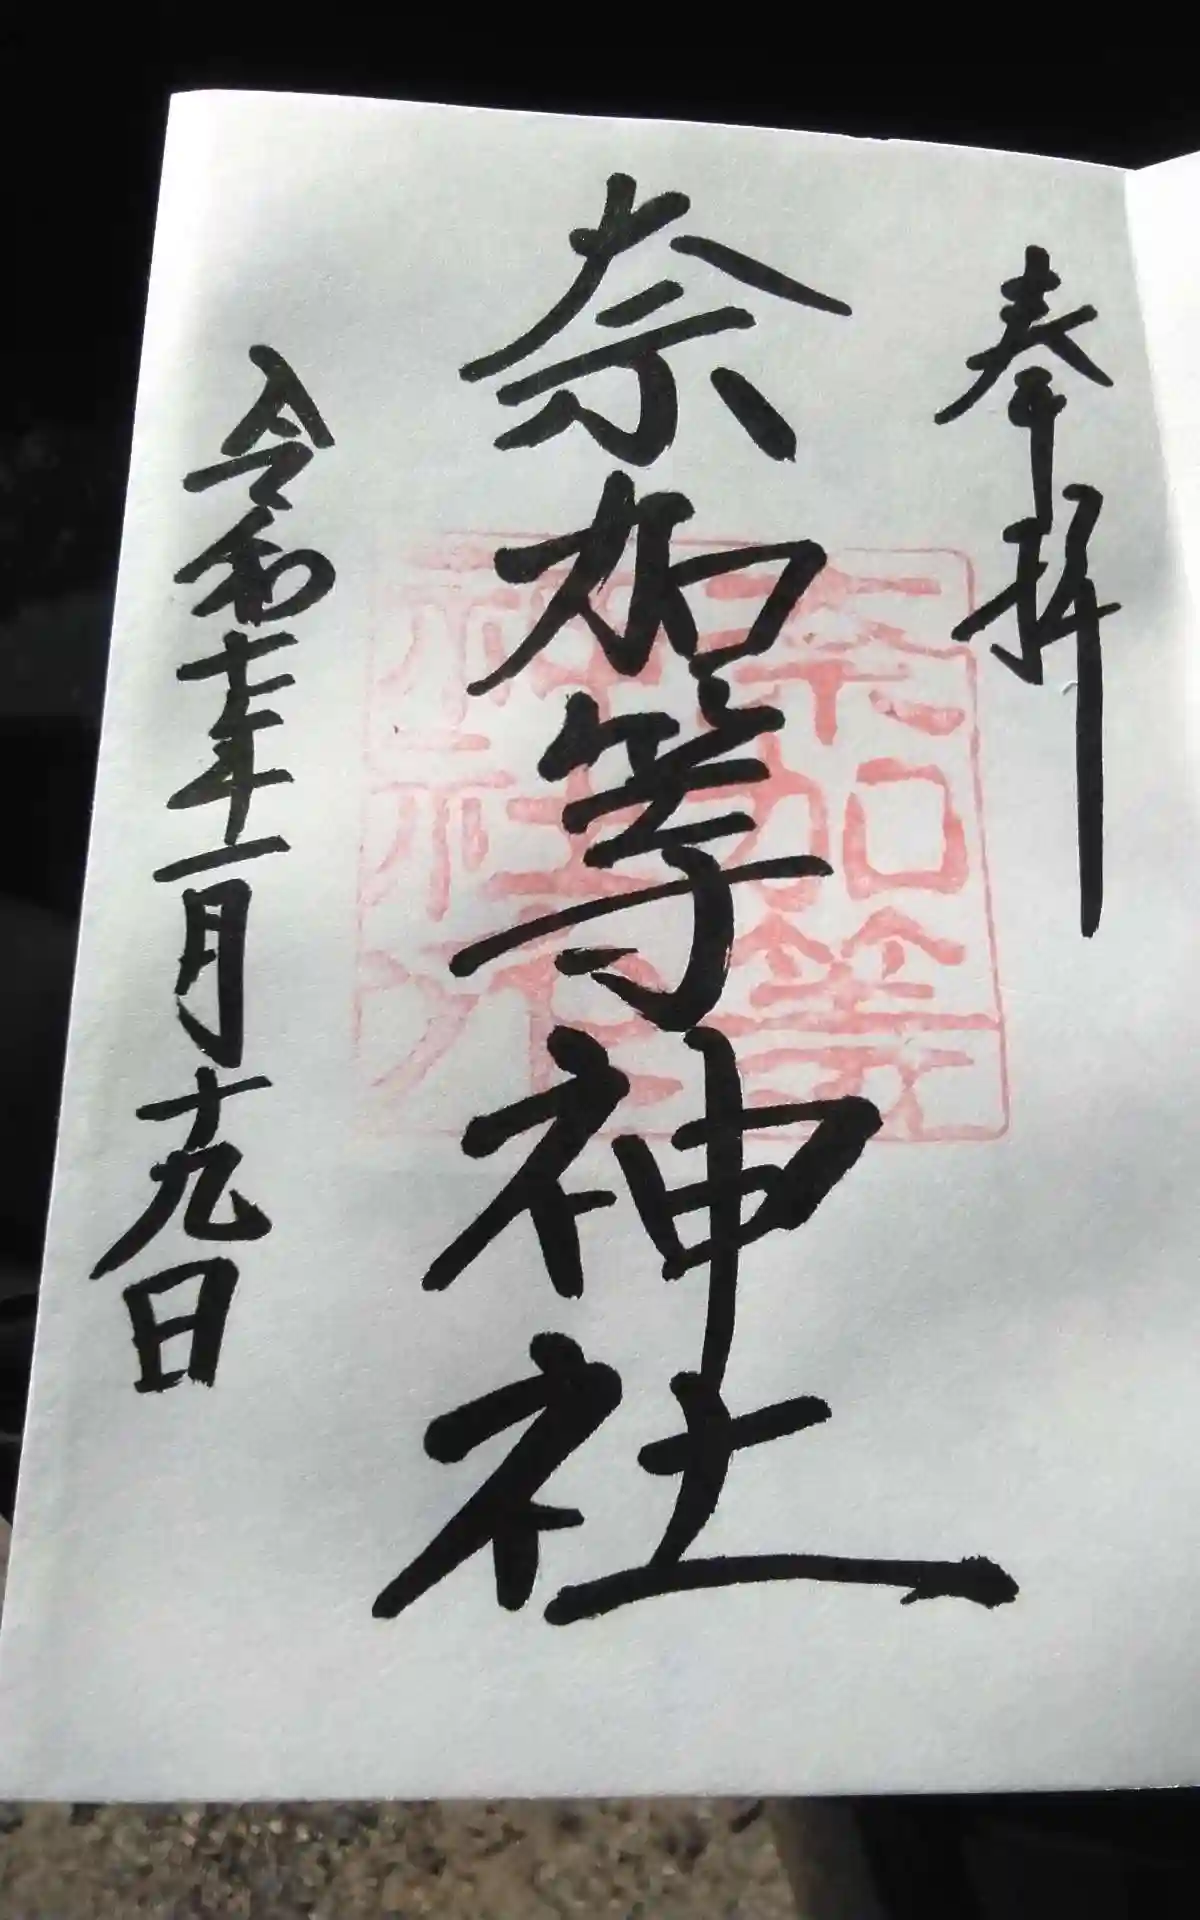 奉拝
奈加等神社
奈加等
神社
令和七年十一月十九日